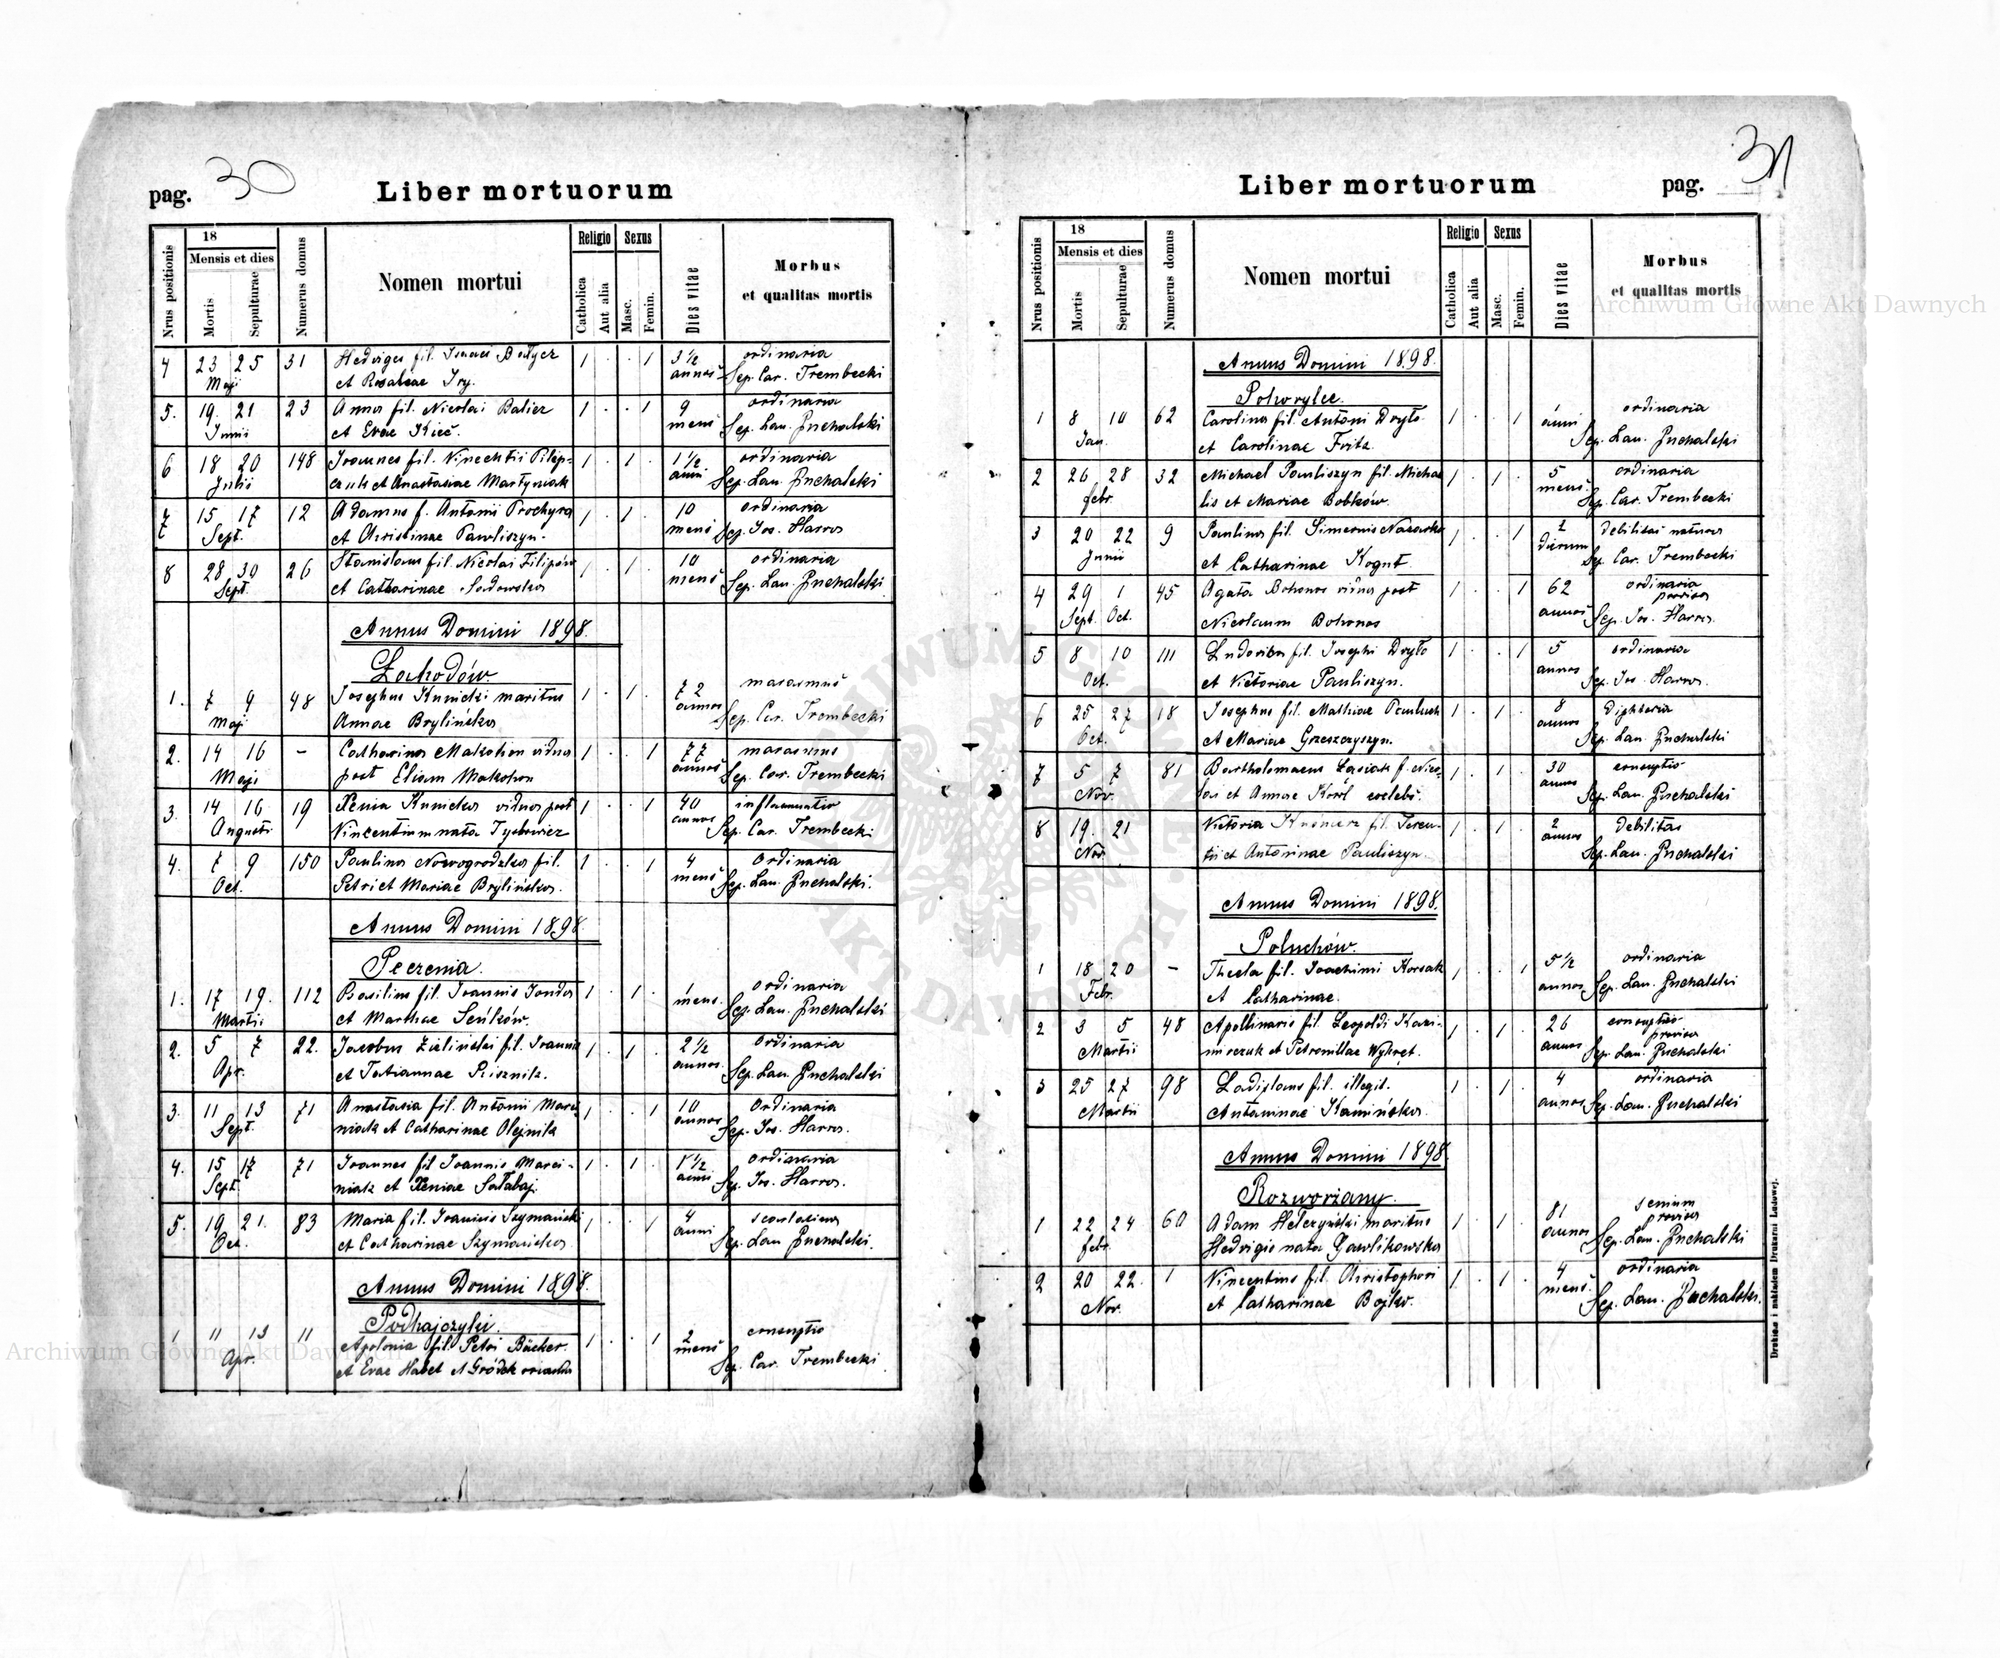 pag. 30
Liber mortuorum
Nrus positionis
18
Mensis et dies
Mortis
Sepulturae
Numerus domus
Nomen mortui
Religio
Catholica
Aut alia
Sexus
Masc.
Femin.
Dies vitae
Morbus
et qualitas mortis
4 23 25 31 Hedvigis fil. 1 . . 1 3 1/2 ordinaria
Maji et Rosaliae annos Sep. Car. Trembecki
5. 19. 21 23 Anna fil. Nicolai Balicz 1 . . 1 9 ordinaria
Junii et Evae Kieć. mens Sep. Lau. Puchalski
6 18 20 148 Joannes fil. Vincentii Pilip- 1 . 1 . 1 1/2 ordinaria
Julii czuk et Anastasiae Martyniak anni Sep. Lau. Puchalski
7 15 17 12 Adamus f. Antonii Prochyra 1 . 1 . 10 ordinaria
Sept. et Christinae Pawliszyn. mens Sep. Jos. Harros
8 28 30 26 Stanislaus fil. Nicolai Filipów 1 . 1 . 10 ordinaria
Sept. et Catharinae Sadowska mens Sep. Lau. Puchalski.
Annus Domini 1898.
Zachodów.
1. 7 9 48 Josephus Kunicki maritus 1 . 1 . 72 marasmus
Maji Annae Brylińska annos Sep. Car. Trembecki
2. 14 16 - Catharina Makohon vidua 1 . . 1 77 marasmus
Maji post Eliam Makohon annos Sep. Car. Trembecki
3. 14 16 19 Xenia Kunicka vidua post 1 . . 1 40 inflammatio
Augusti Vincentium nata annos Sep. Car. Trembecki
4. 7 9 150 Paulina Nowogrodzka fil. 1 . . 1 4 Ordinaria
Oct. Petri et Mariae Brylińska. mens Sep. Lau. Puchalski.
Annus Domini 1898.
Peczenia.
1. 17 19. 112 Basilius fil. Joannis 1 . 1 . 1 ordinaria
Martii et Marthae Seńków. mens. Sep. Lau. Puchalski
2. 5 7 22. Jacobus Zieliński fil. Joannis 1 . 1 . 2 1/2 Ordinaria
Apr. et Tatiannae annos. Sep. Lau. Puchalski
3. 11 13 71 Anastasia fil. Antonii Marci- 1 . . 1 10 Ordinaria
Sept. niak et Catharinae Olejnik annos Sep. Jos. Harros.
4. 15 17 71 Joannes fil Joannis Marci- 1 . 1 . 1 1/2 ordinaria
Sept. niak et Xeniae Sałabaj. anni Sep. Jos. Harros.
5. 19 21. 83 Maria fil. Joannis Szymański 1 . . 1 4
Oct. et Catharinae anni Sep. Lau Puchalski.
Annus Domini 1898.
Podhajczyki.
1 11 13 11 Apolonia fil. Petri Bäcker. 1 . . 1 2
Apr. et Evae Habel mens Sep. Car. Trembecki
Liber mortuorum
pag. 31
Nrus positionis
18
Mensis et dies
Mortis
Sepulturae
Numerus domus
Nomen mortui
Religio
Catholica
Aut alia
Sexus
Masc.
Femin.
Dies vitae
Morbus
et qualitas mortis
Annus Domini 1898.
Pohorylce.
1 8 10 62 Carolina fil. Antoni Dryło 1 . . 1 1 ordinaria
Jan. et Carolinae Fritz. anni Sep. Lau. Puchalski
2 26 28 32 Michael Pauliszyn fil. Michae 1 . 1 . 5 ordinaria
febr. lis et Mariae Bobków. mens. Sep. Car. Trembecki
3 20 22 9 Paulina fil. Simeonis 1 . . 1 debilitas
Junii et Catharinae Kogut. dierum Sep. Car. Trembecki
4 29 1 45 Agata Bohonos vidua post 1 . . 1 62 ordinaria
provisa
Sept. Oct. Nicolaum Bohonos annos Sep. Jos. Harros.
5 8 10 111 Ludovica fil. Josephi Dryło 1 . . 1 5 ordinaria
Oct. et Victoriae Pauliszyn. annos Sep. Jos. Harros.
6 25 27 18 Josephus fil. Mathiae 1 . 1 . 8 diphteria
Oct. et Mariae Grzeszczyszyn. annos Sep. Lau. Puchalski
7 5 7 81 Bartholomaeus f. Nico- 1 . 1 . 30
Nov. lai et Annae Król coelebs. annos Sep. Lau. Puchalski
8 19. 21 Victoria fil. Teren- 1 . 1 . 2 debilitas
Nov. tii et Antoninae Pauliszyn. annos Sep. Lau. Puchalski
Annus Domini 1898.
Poluchów.
1 18 20 - Thecla fil. Joachimi Korsak 1 . . 1 5 1/2 ordinaria
Febr. et Catharinae. annos Sep. Lau. Puchalski
2 3 5 48 Apollinaris fil. Leopoldi Kazi- 1 . 1 . 26
provisa
Martii mirczuk et Petronillae Wykręt. annos Sep. Lau. Puchalski
3 25 27 98 Ladislaus fil. illegit. 1 . 1 . 4 ordinaria
Martii Antoninae Kamińska. annos Sep. Lau. Puchalski
Annus Domini 1898.
Rozworzany.
1 22 24 60 Adam maritus 1 . 1 . 81 senium
provisus
febr. Hedvigis nata Gawlikowska annos Sep. Lau. Puchalski
2 20 22. 1 Vincentius fil. Christophori 1 . 1 . 4 ordinaria
Nov. et Catharinae Bojko. mens. Sep. Lau. Puchalski.
Drukiem i nakładem Drukarni Ludowej.
Archiwum Główne Akt Dawnych
Archiwum Główne Akt Dawnych
ARCHIWUM GŁÓWNE AKT DAWNYCH